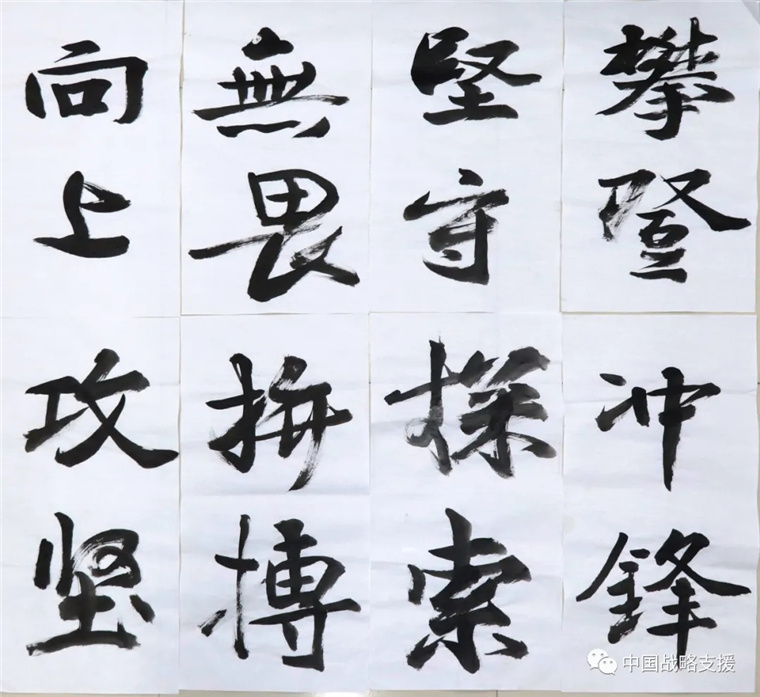 攀登
堅守
無畏
向上
冲鋒
探索
拼搏
攻坚
中国战略支援